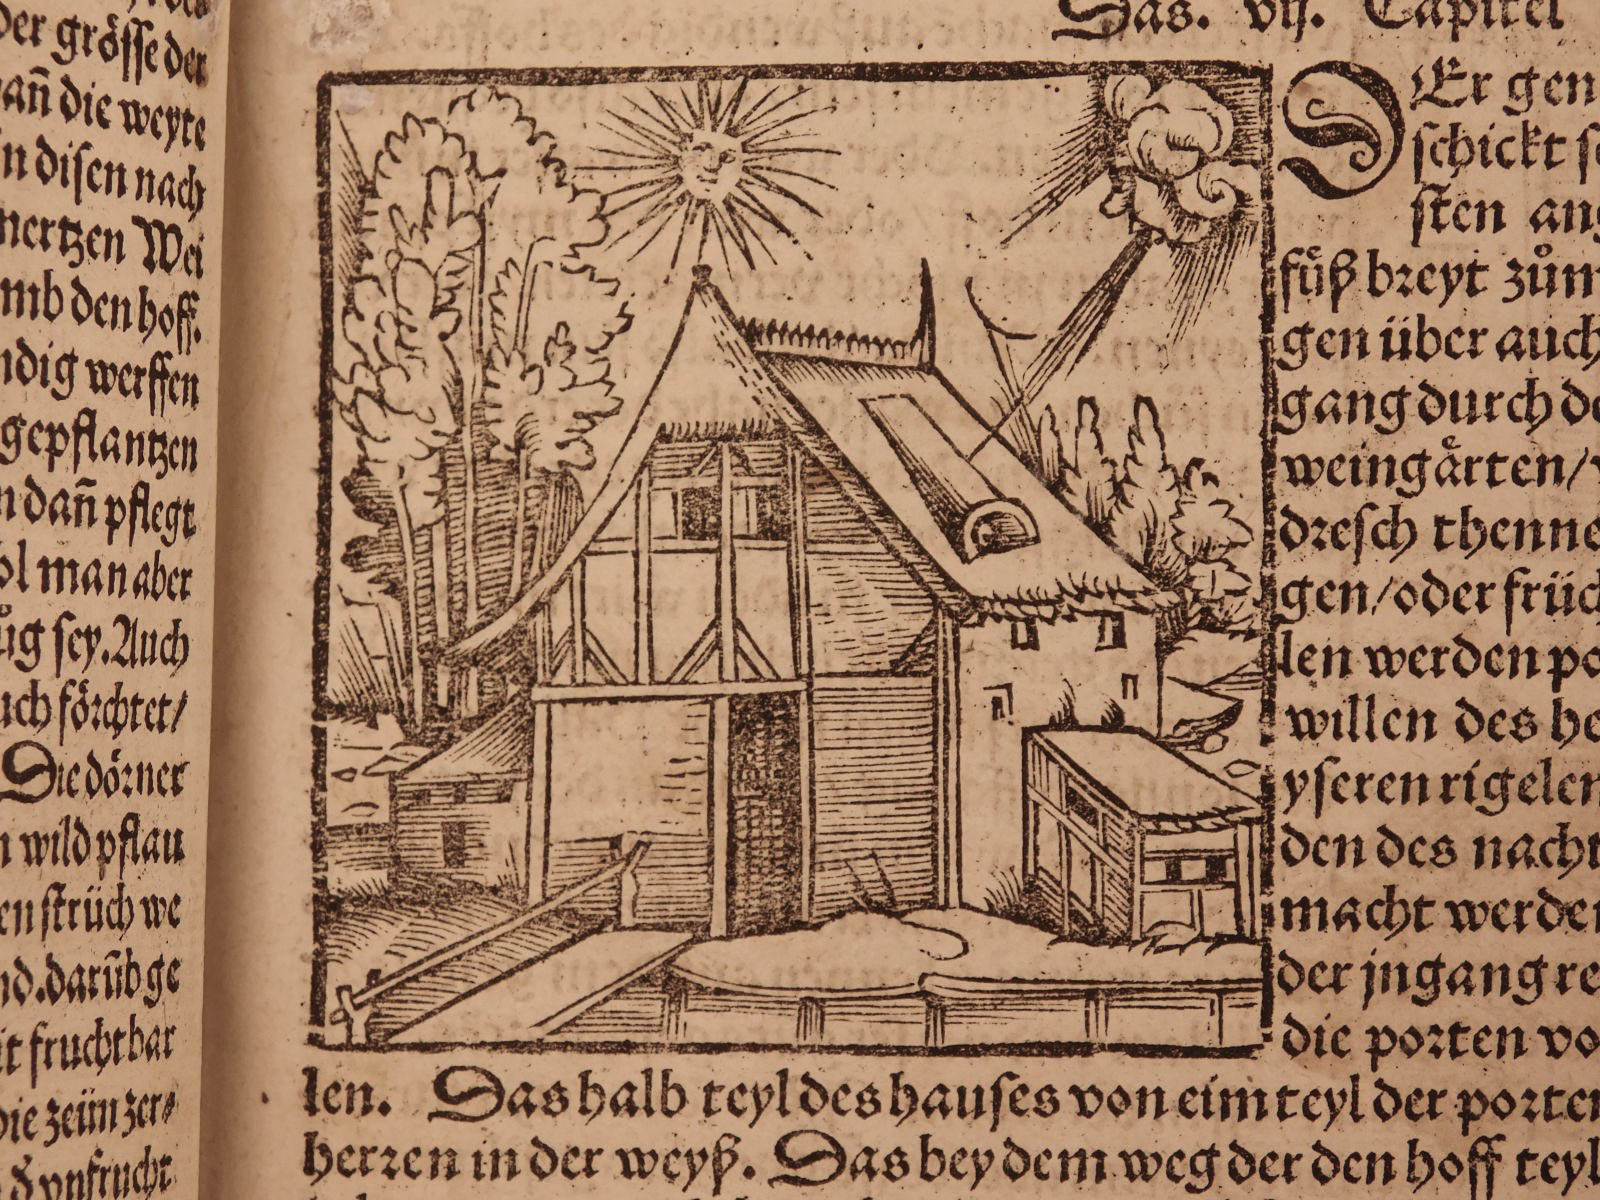 der grösse der
dañ die weyte
in disen nach
mertzen Wei
umb den hoff.
ndig werffen
gepflantzen
n dañ pflegt
ol man aber
ůg sey. Auch
uch förchtet/
Die dörner
n wild pflau
en strüch we
nd. darũb ge
it fruchtbar
die zeün zer⸗
d vnfrucht
Das. vij. Capitel
DEr gen
schickt sc
sten ang
fůß breyt zům
gen über auch
gang durch de
weingårten/
dresch thenne
gen/oder früc
len werden po
willen des he
yseren rigelen
den des nacht
macht werden
der jngang re
die porten vo
len. Das halb teyl des hauses von eim teyl der porten
herren in der weyß. Das bey dem weg der den hoff teyl